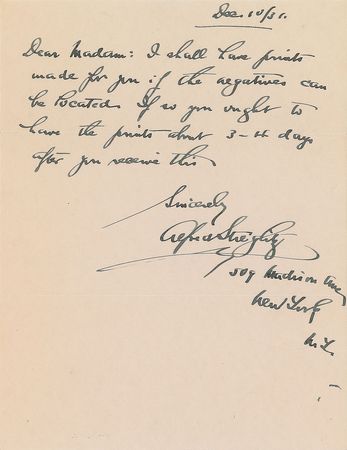 Dec. 10/31.
Dear Madam: I shall have prints
made for you if the negatives can
be located. If so you ought to
have the prints about 3-4 days
after you receive this
Sincerely
Alfred Stieglitz
509 Madison Ave
New York
N.Y.